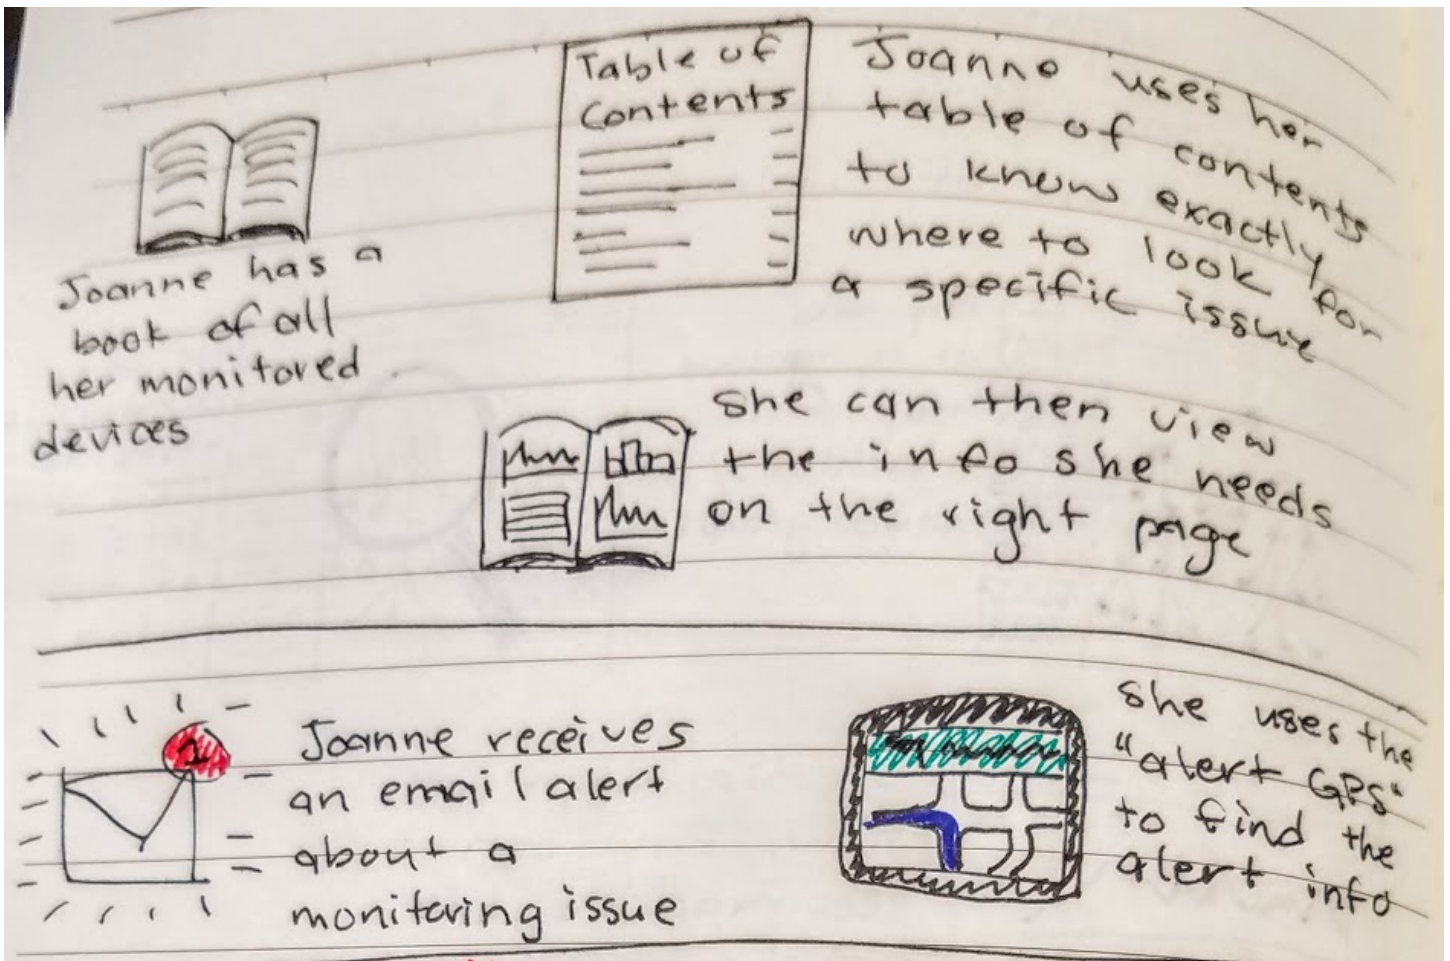 Joanne has a
book of all
her monitored
devices
Table of
Contents
Joanne uses her
table of contents
to know exactly
where to look for
a specific issue
she can then view
the info she needs
on the right page
1
Joanne receives
an email alert
about a
monitoring issue
she uses the
"alert GPS"
to find the
alert info